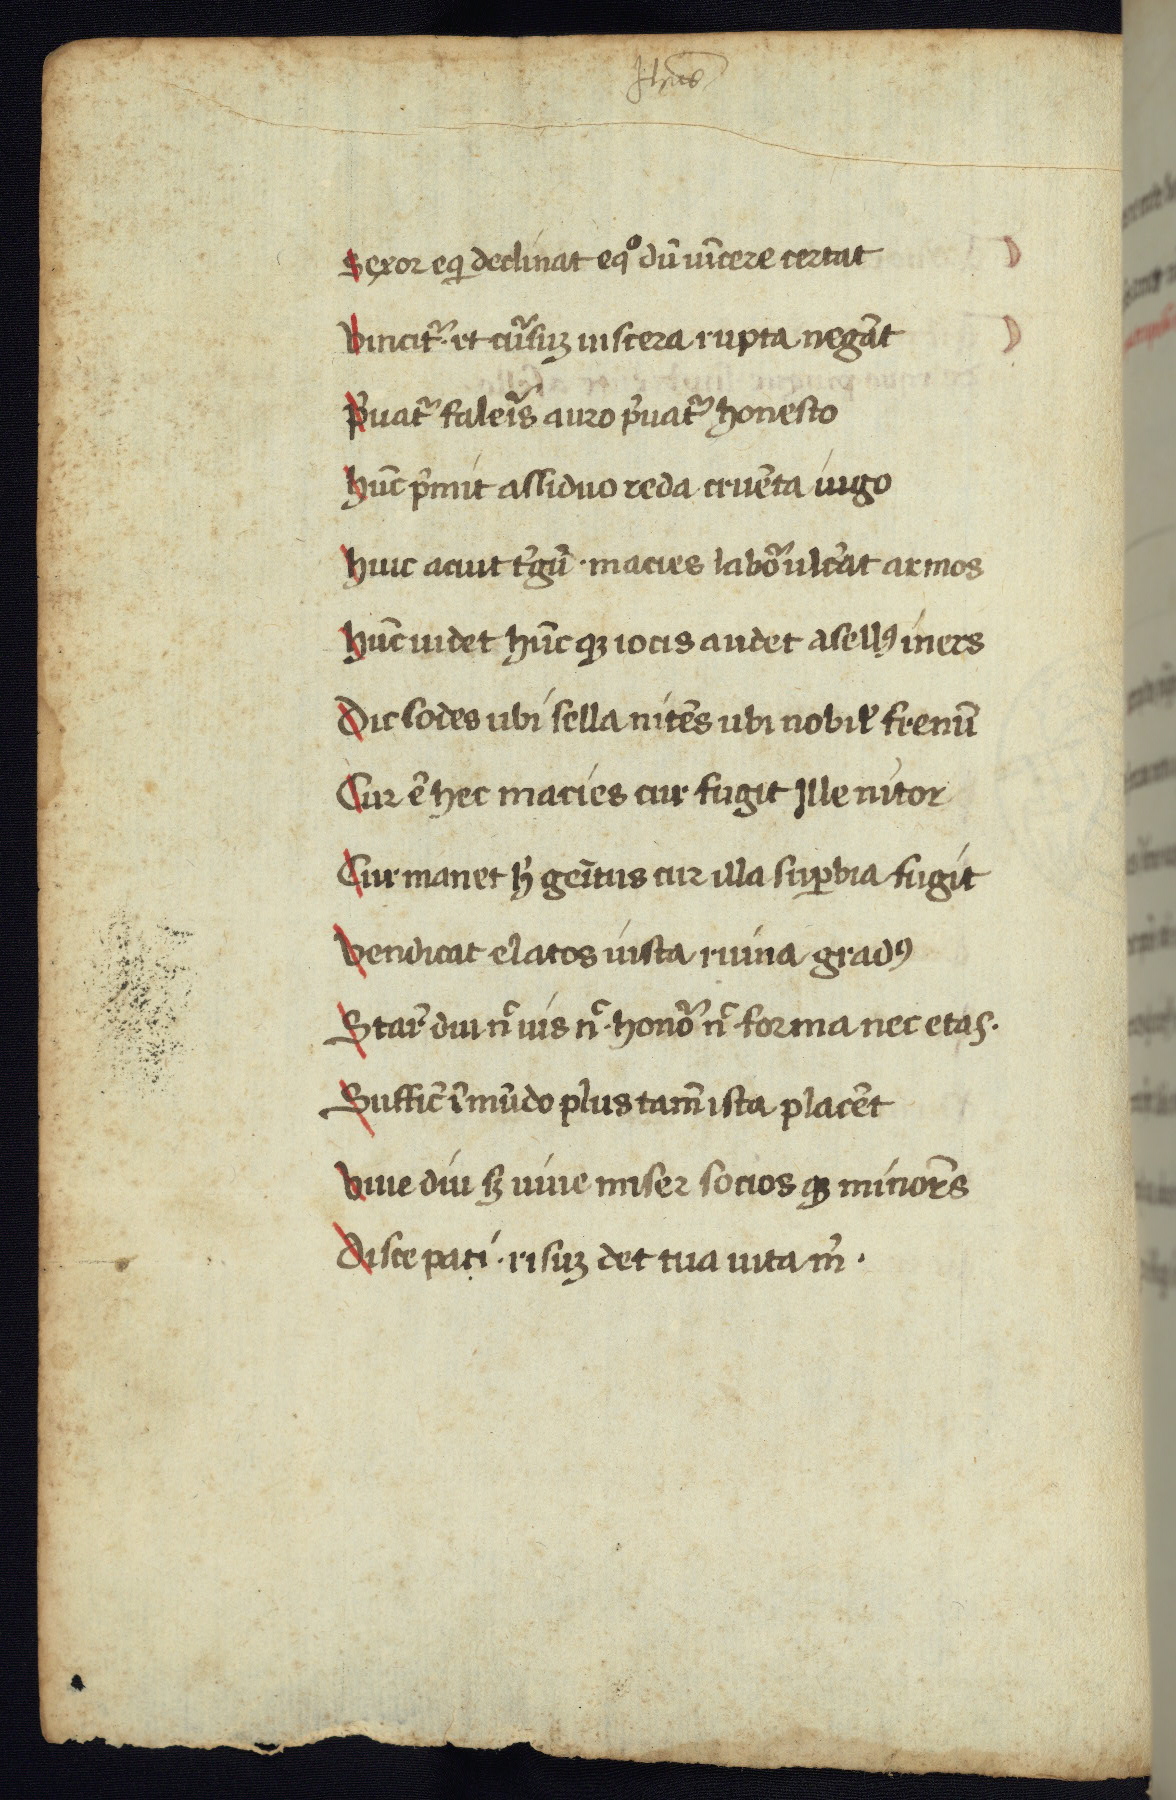 Jhus
Sexor eq declinat eqo dū uīcere certat
Vincit᷑ · et cur̄suʒ uiscera rupta negāt
P̉uat᷑ falerīs auro p̉uat᷑ honesto
hūc p̄mit assiduo reda cruēta iugo
huic acuit t̉gū · macies labor ulc̉at armos
hūc uidet hūc qʒ iocis audet asellꝰ iners
Dic sodes ubi sella nitēs ubi nobil̉ frenū
Cur ē hec macies cur fugit Ille nitor
Cur manet h̉ gemitus cur illa suꝑbia fugit
Vendicat elatos iusta ruina gradꝰ
Star̄ diu nc̄ uis nc̄ · honor nc̄ forma nec etas ·
Suffic̄ ī mūdo plus tam̄ ista placēt
Viue diu sʒ uiue miser socios qʒ minorēs
Disce pati · risuʒ det tua uita m̉ ·